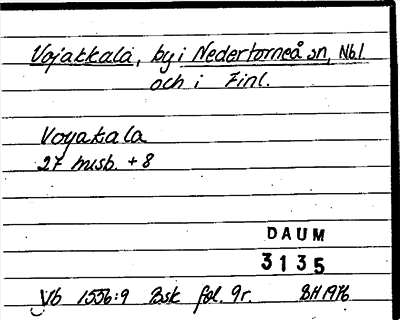 Vojakkala, by i Nedertorneå sn, Nbl.
och i Finl.
Voyakala
27 husb. + 8
DAUM
3135
Vb 1556:9 Bsk fol. 9r. BH 1976